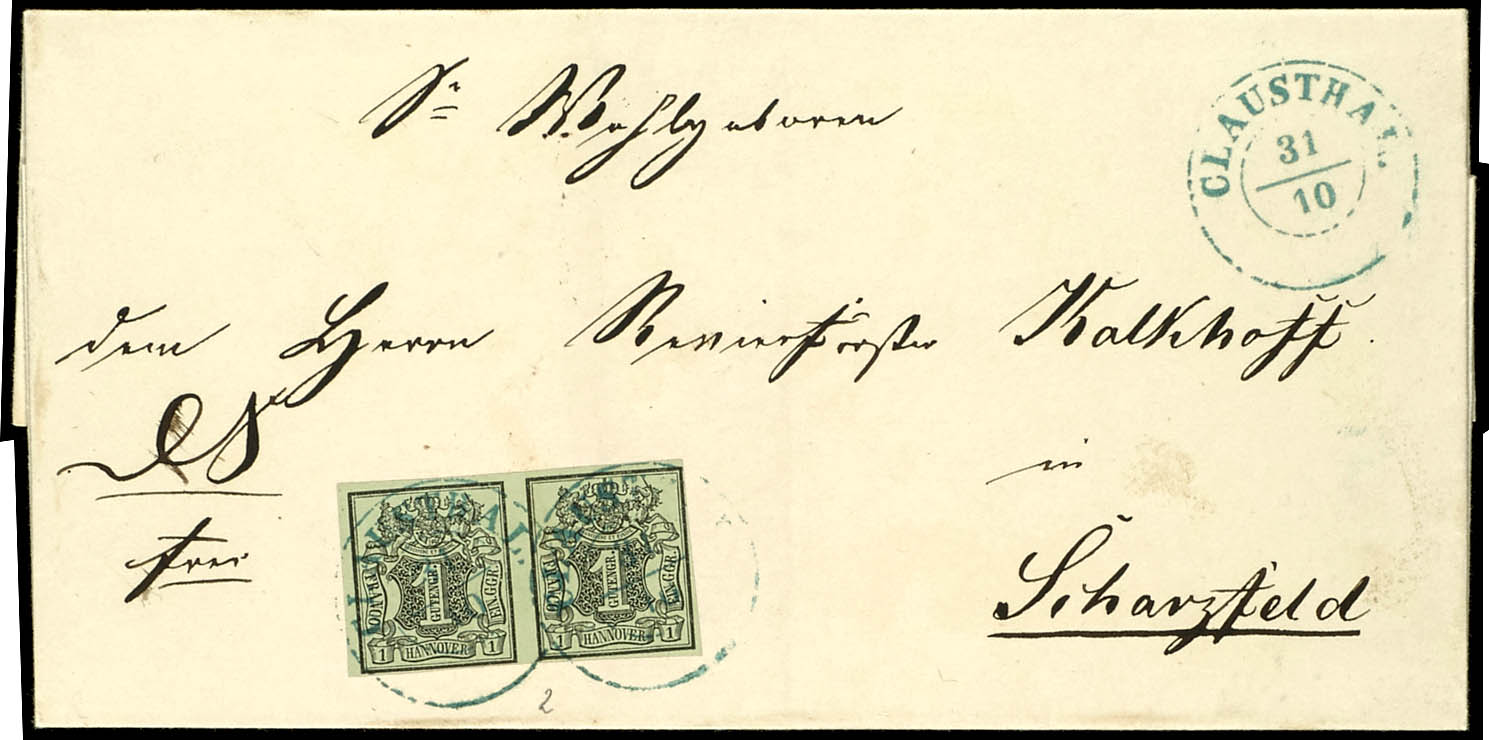 Sr Wohlgeboren
CLAUSTHAL.
31
10
dem Herrn Revierförster Kalkhoff.
DS
frei
in
Scharzfeld
CLAUSTHAL.
FRANCO
1
GUTENGR.
EIN GGR.
1 HANNOVER 1
CLAUSTHAL
FRANCO
1
GUTENGR.
EIN GGR.
1 HANNOVER 1
2